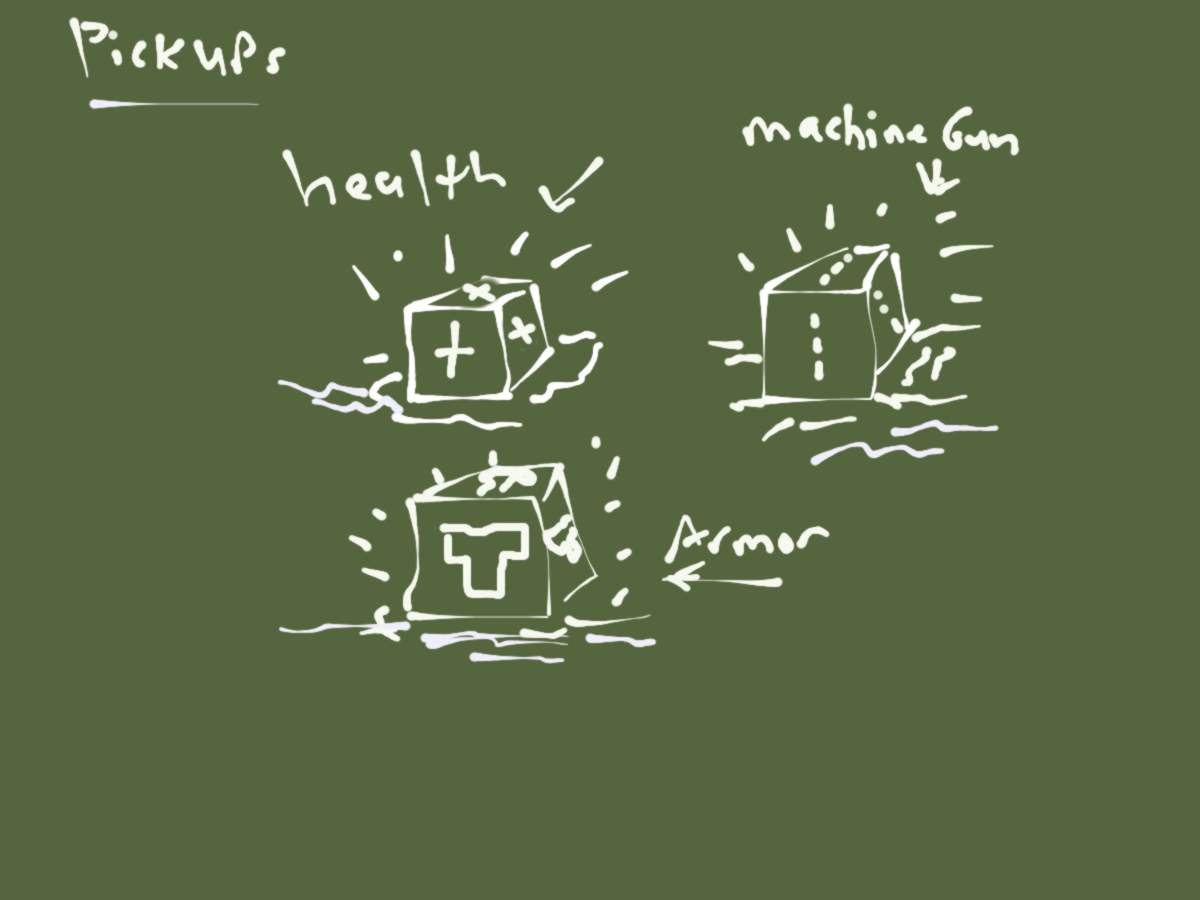 Pickups
health
machine Gun
Armor